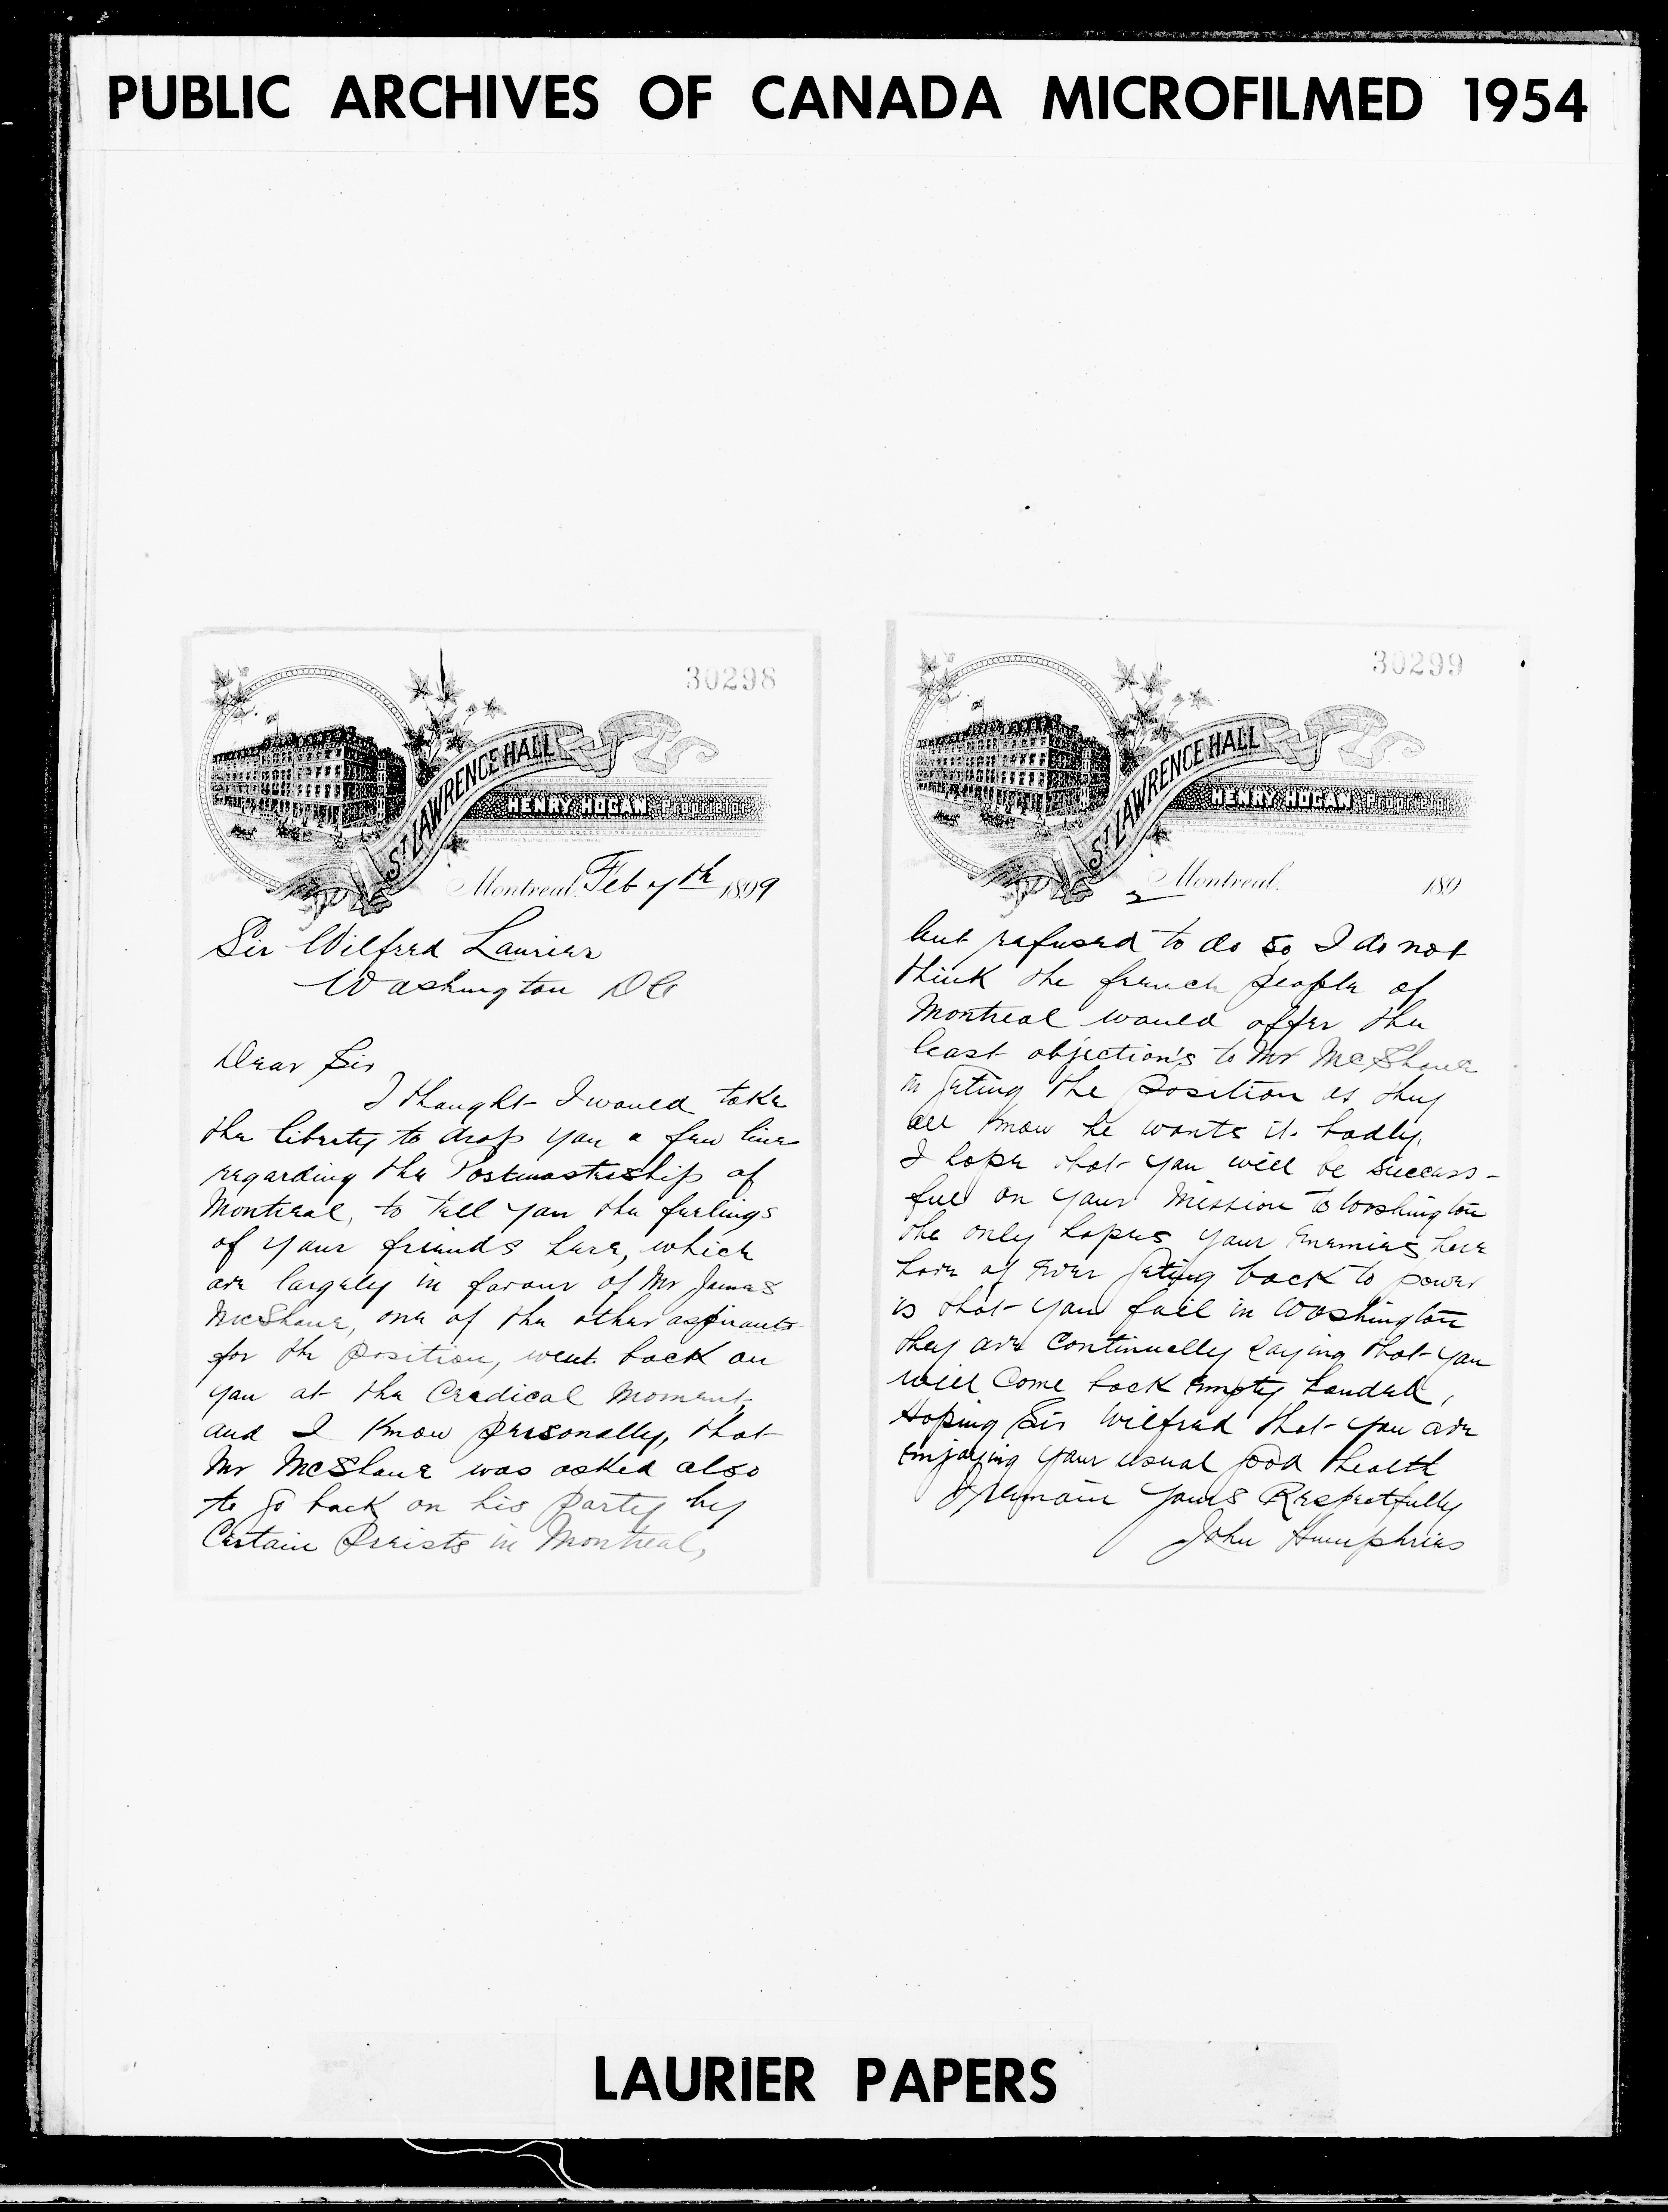 PUBLIC ARCHIVES OF CANADA MICROFILMED 1954
30298
ST. LAWRENCE HALL
HENRY HOGAN Proprietor
Montreal, Feb 7th 1899
Sir Wilfred Laurier
Washington DC
Dear Sir
I thought I would take
the liberty to drop you a few lines
regarding the Postmastership of
Montreal, to tell you the feelings
of your friends here, which
are largely in favour of Mr James
McShane, one of the other aspirants
for the position, went back on
you at the Cradical moment,
and I know personally, that
Mr McShane was asked also
to go back on his party by
Certain Preists in Montreal,
30299
ST. LAWRENCE HALL
HENRY HOGAN Proprietor
2 Montreal, 189
but refused to do so, I do not
think the french people of
Montreal would offer the
least objection's to Mr McShane
in geting the position as they
all know he wants it badly.
I hope that you will be success-
full on your mission to Washington
the only hopes your Enemies here
have of ever geting back to power
is that you fail in Washington
they are continually saying that you
will Come back Empty handed,
Hoping Sir Wilfred that you are
Enjoying your usual good health
I remain Yours Respectfully
John Humphries
LAURIER PAPERS